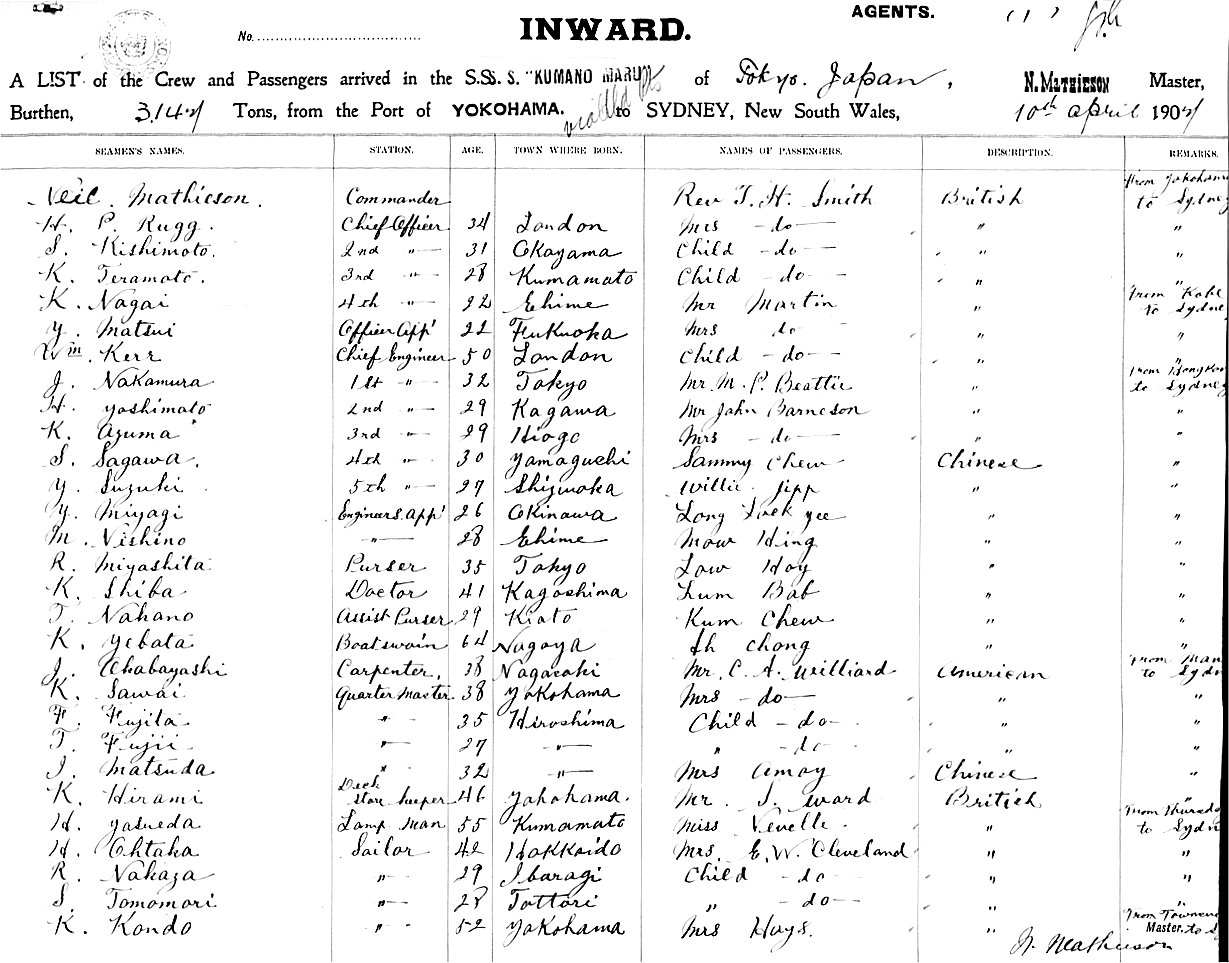 AGENTS.
No.
INWARD.
A LIST of the Crew and Passengers arrived in the S.S. S. S. "KUMANO MARU" of Tokyo. Japan, N. MATHIESON Master,
Burthen, 3,147 Tons, from the Port of YOKOHAMA. to SYDNEY, New South Wales, 10th april 1907
SEAMEN'S NAMES. STATION. AGE. TOWN WHERE BORN. NAMES OF PASSENGERS. DESCRIPTION. REMARKS.
Neil Mathieson. Commander Rev T. H. Smith British From Yokohama to Sydney
H. P. Rugg. Chief Officer 34 London Mrs -do- " "
S. Kishimoto. 2nd " 31 Okayama Child -do- " "
K. Teramoto. 3rd " 28 Kumamato Child -do- " "
K. Nagai 4th " 22 Ehime Mr Martin " From Kobe to Sydney
Y. Matsui Officer App' 22 Fukuoka Mrs do " "
Wm. Kerr Chief Engineer 50 London Child -do- " "
J. Nakamura 1st " 32 Tokyo Mr. M. P. Beattie " From Hongkon to Sydney
H. Yoshimato 2nd " 29 Kagawa Mr John Barneson " "
K. Azuma 3rd " 29 Hiogo Mrs -do- " "
S. Sagawa. 4th " 30 Yamaguchi Sammy Chew Chinese "
Y. Suzuki 5th " 27 Shizuoka Willie Jipp " "
Y. Miyagi Engineers. App' 26 Okinawa Long Luek yee " "
M. Nishino " 28 Ehime Mow Hing " "
R. Miyashita Purser 35 Tokyo Low Hoy " "
K. Shiba Doctor 41 Kagoshima Lum Bab " "
T. Nakano Assist Purser 29 Kioto Kum Chew " "
K. Yebata Boatswain 64 Nagoya Ah Chong " "
J. Chabayashi Carpenter. 38 Nagasaki Mr. C. A. Williard American From Man to Sydn
K. Sawai Quarter Master 38 Yokohama Mrs -do- " "
F. Fujita " 35 Hiroshima Child -do- " "
T. Fujii " 27 " " -do- " "
I. Matsuda " 32 " Mrs Amoy Chinese "
K. Hirami Deck store keeper 46 Yokohama. Mr. J. Ward British "
H. Yasueda Lamp Man 55 Kumamato Miss Nevelle. " From Thursda to Sydn
H. Ohtaka Sailor 42 Hokkaido Mrs. E. W. Cleveland " "
R. Nakaza " 29 Ibaragi Child -do- " "
S. Tomomori " 28 Tottori " -do- " "
K. Kondo " 52 Yokohama Mrs Hays. " From Townsv to S
Master.
N. Mathieson